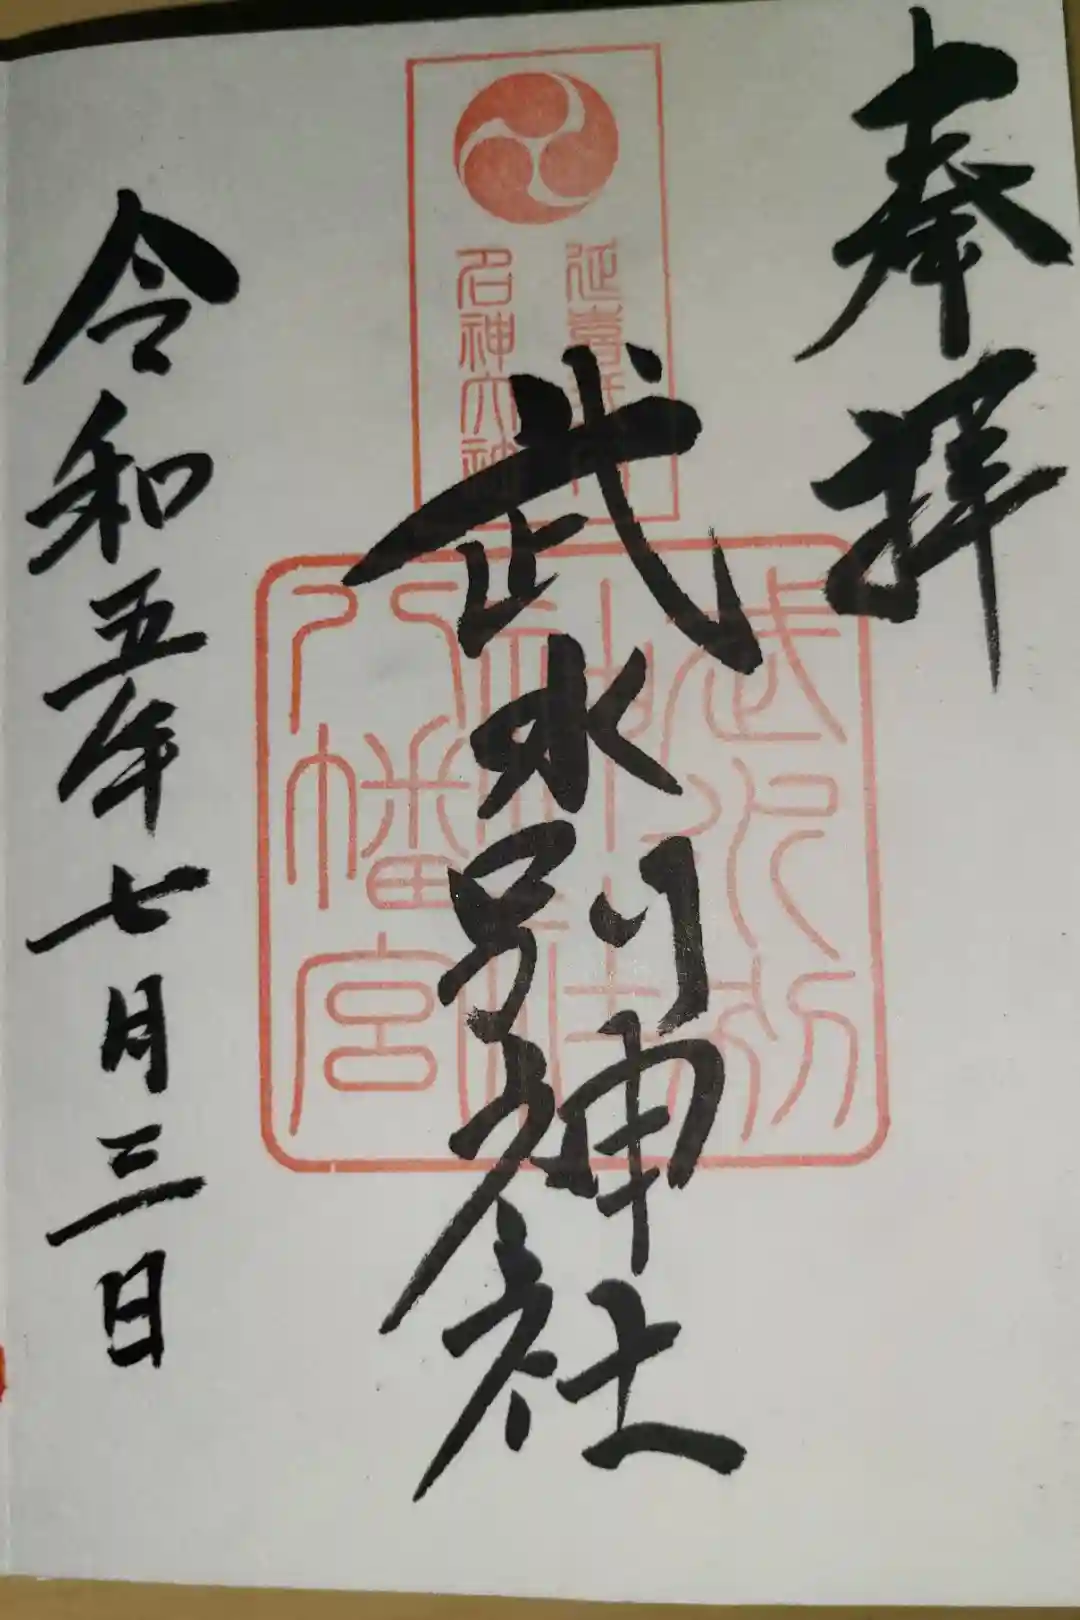 奉拝
延喜式内
名神大社
武水別神社
武水別
神社
八幡宮
令和五年七月三日